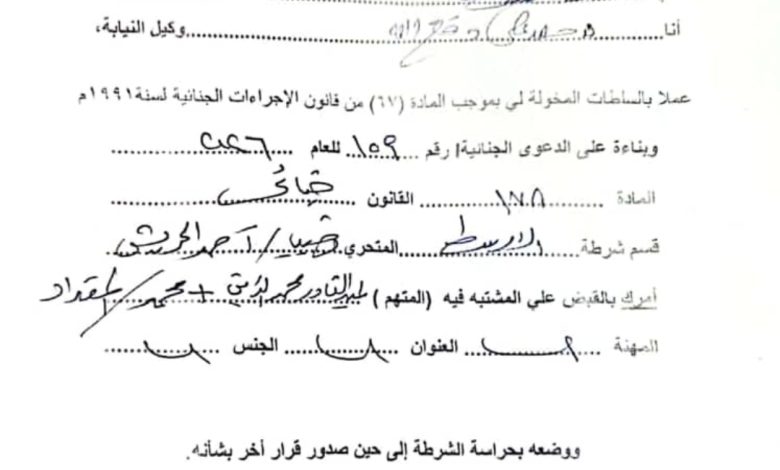 أنا محمد وكيل النيابة،
عملا بالسلطات المخولة لي بموجب المادة (٦٧) من قانون الإجراءات الجنائية لسنة ١٩٩١م
وبناءة على الدعوى الجنائية/ رقم ١٥٩ للعام
المادة ١٧٨ القانون جنائي
قسم شرطة الاوسط المتحري / احمد
أمرك بالقبض علي المشتبه فيه (المتهم) عبدالقادر محمد + محمد / المقداد
المهنة العنوان الجنس
ووضعه بحراسة الشرطة إلى حين صدور قرار أخر بشأنه.